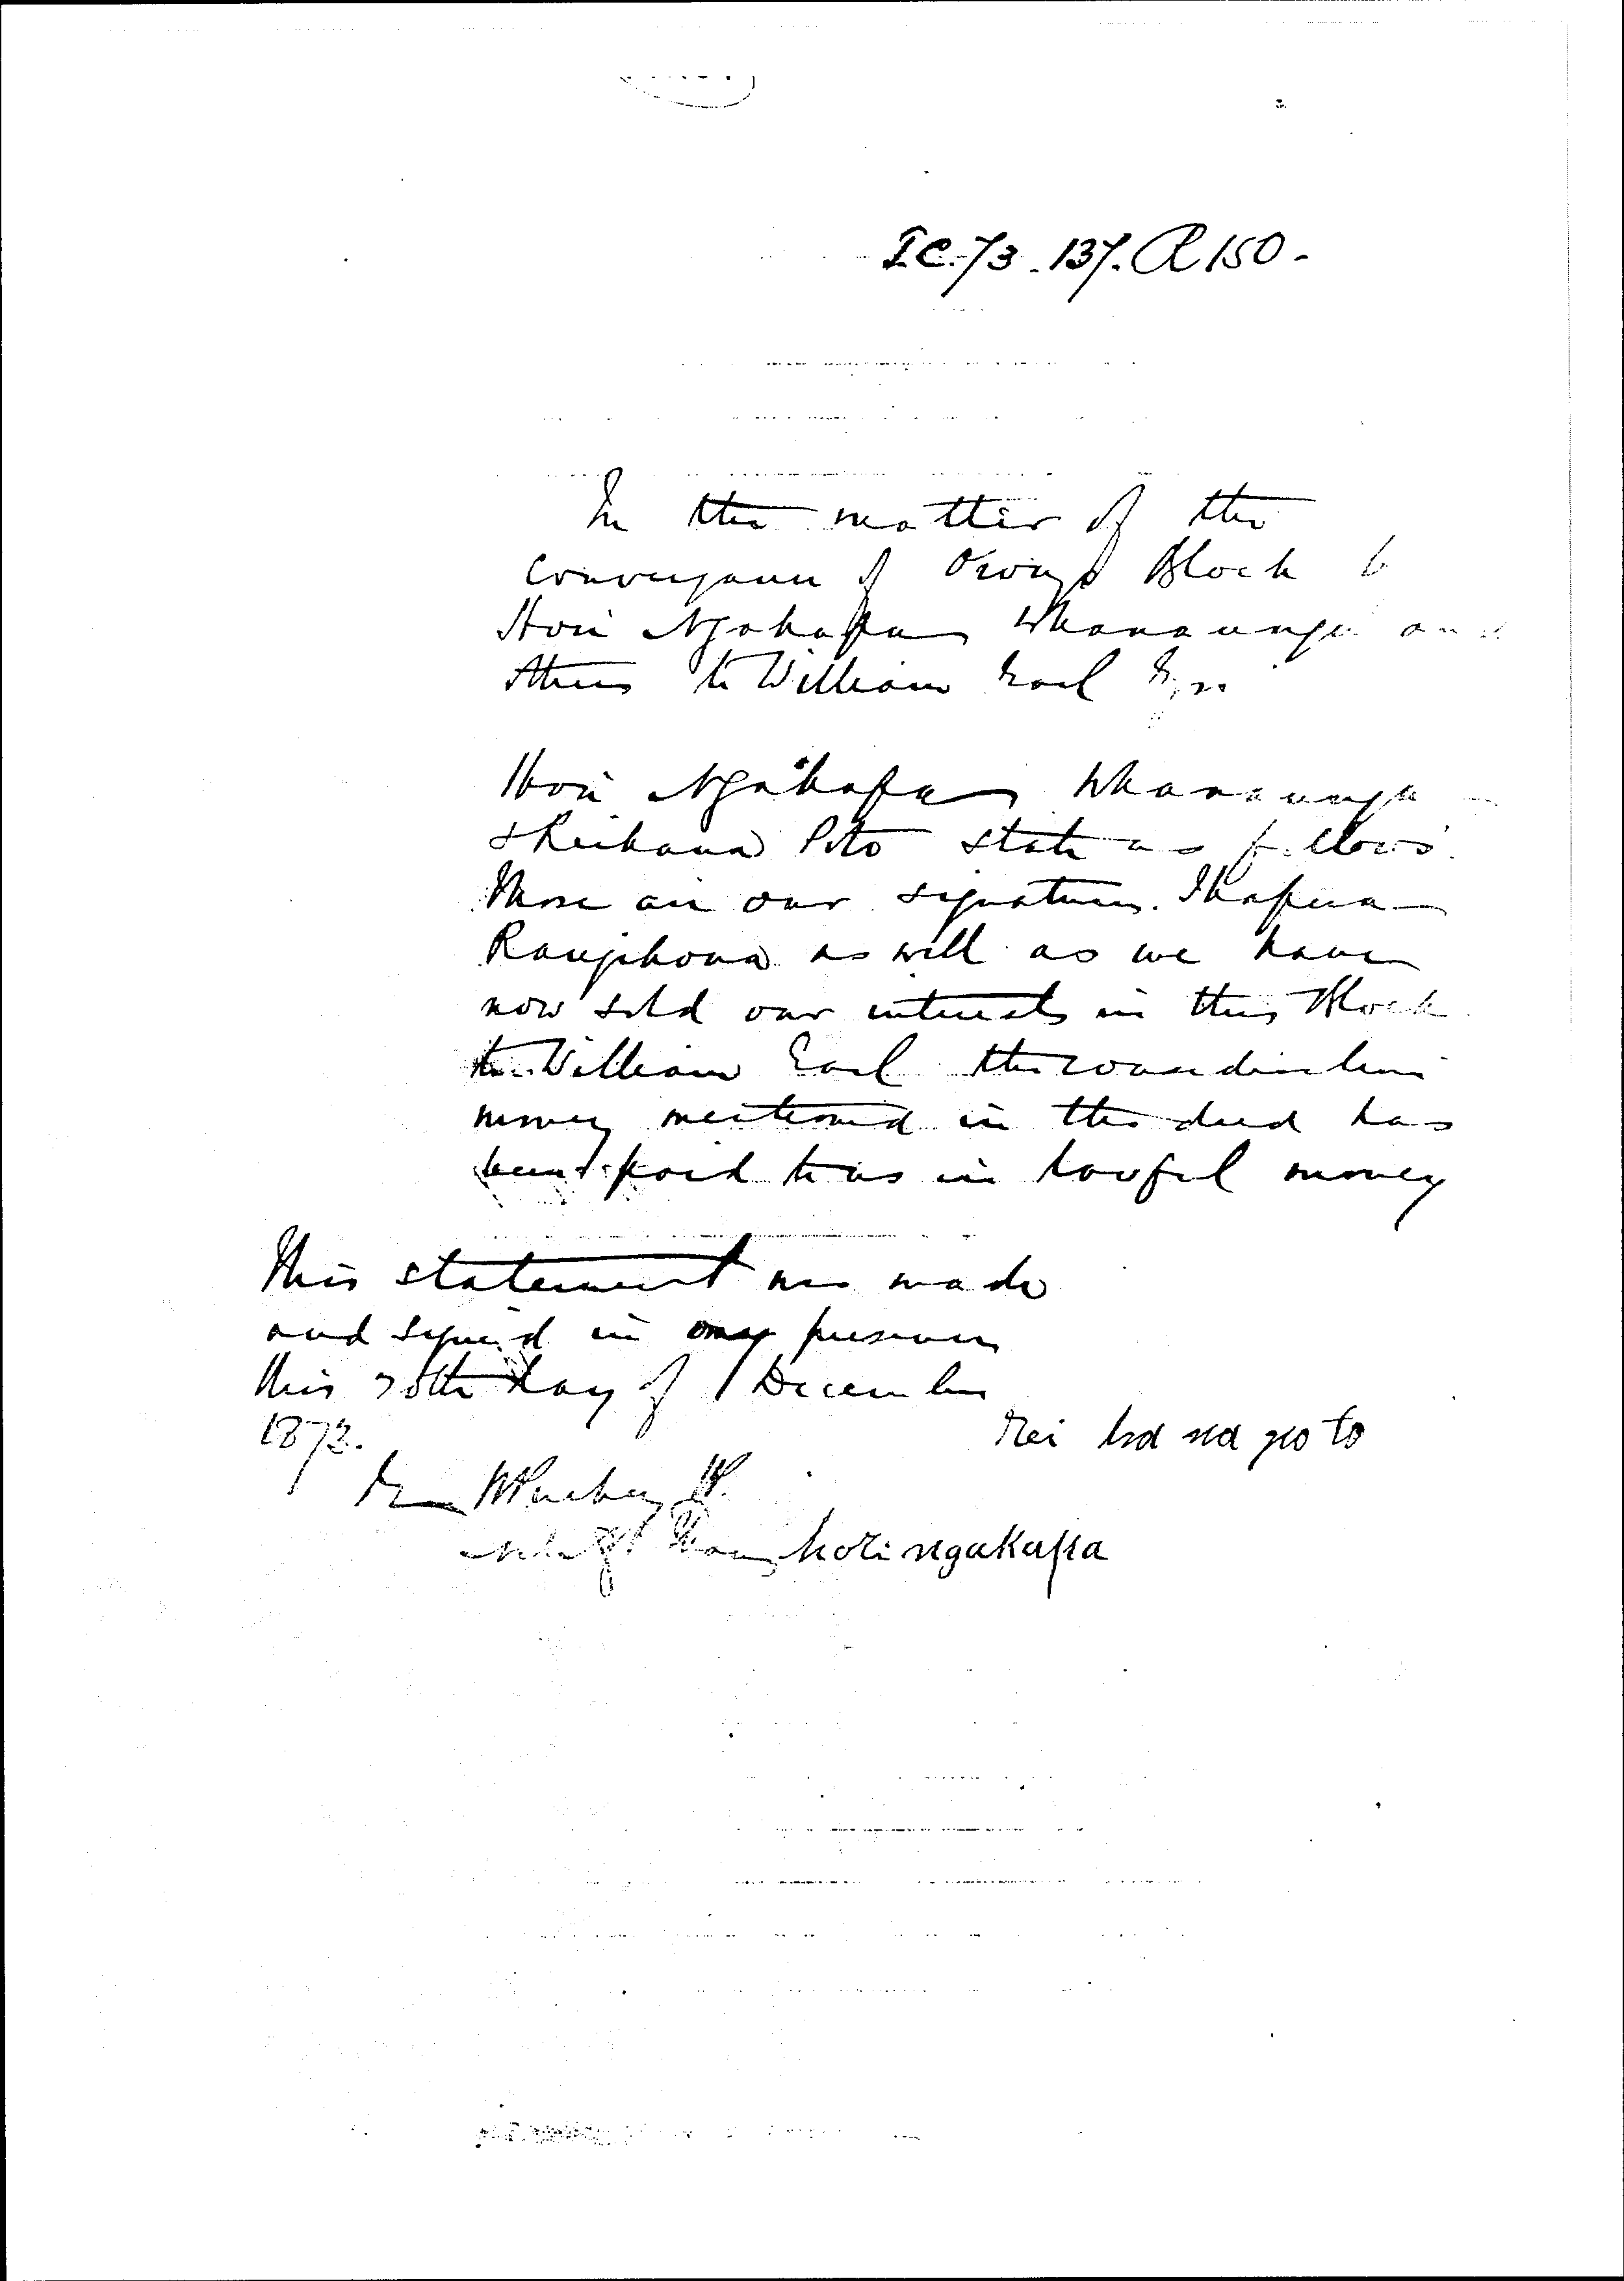 I.C. 73. 137. R 150 -
In the matter of the
conveyance of Block
Hori Ngakapa Whanaunga and
others to William Earl
Hori Ngakapa Whanaunga
& Reihana Poto state as follows
These are our signatures.
as well as we have
now sold our interests in this Block
to William Earl the consideration
money mentioned in the deed has
been paid to us in lawful money
This statement was made
and signed in my presence
this day of December
1872.
Rei hana poto
hori ngakapa